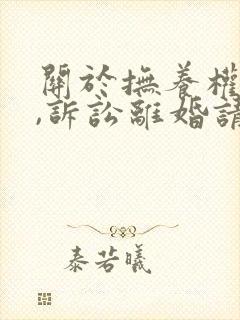 關於撫養權
,訴訟離婚請
泰若曦